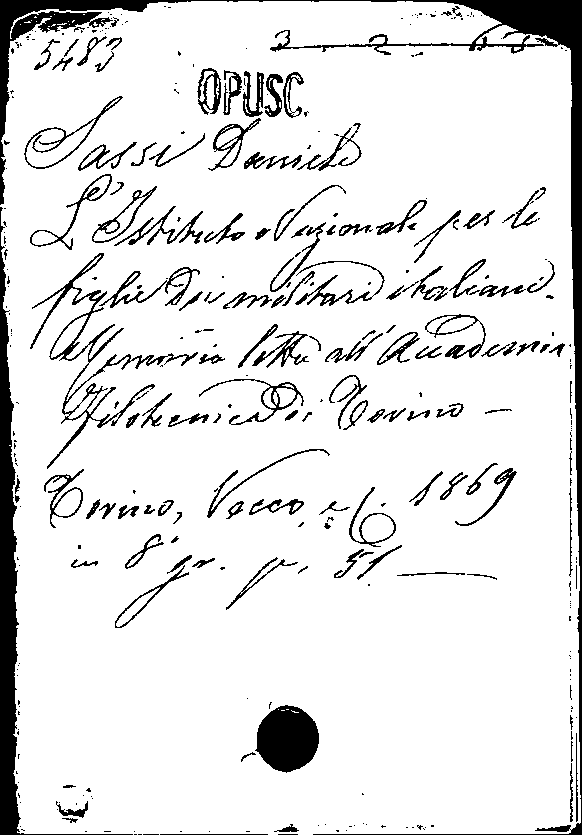 5483 3. 2. 65
OPUSC.
Sassi Daniele
L'Istituto Nazionale per le
figlie dei militari italiani.
Memoria letta all'Accademia
Filotecnica di Torino —
Torino, Vacco, e C. 1869
in 8° gr. p. 51. —